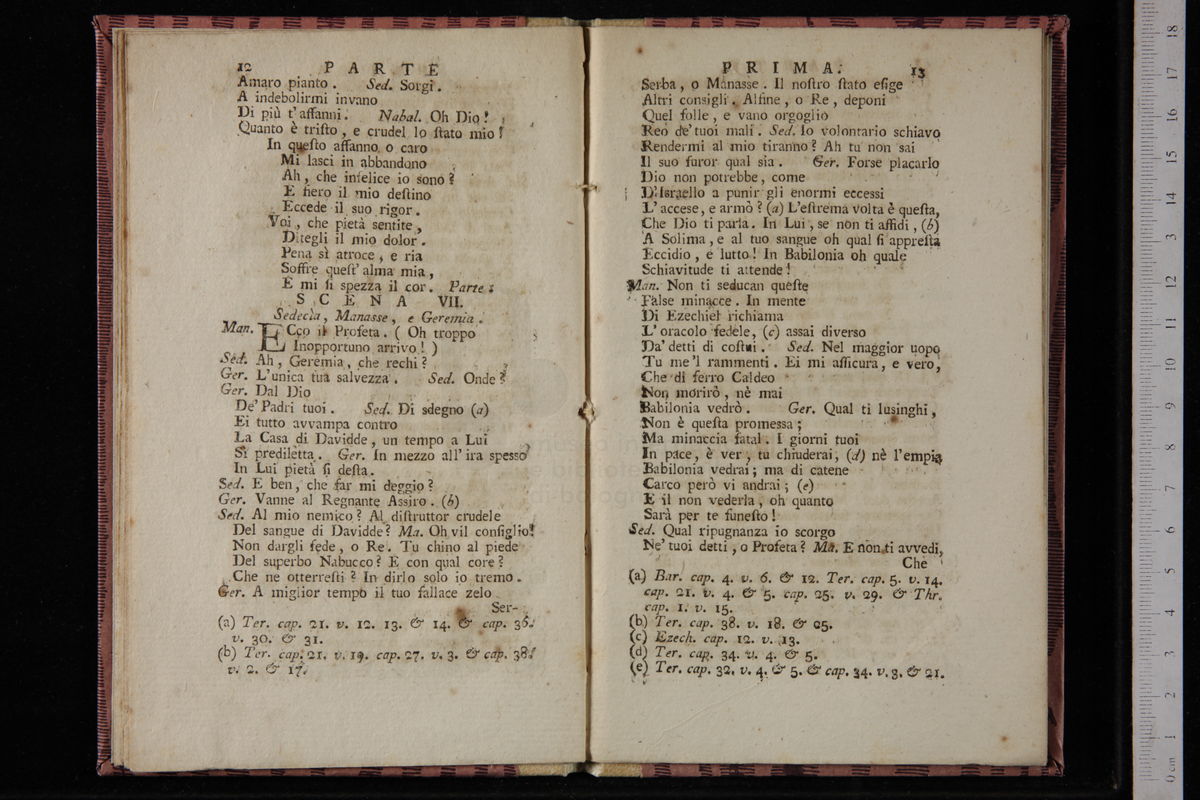 12 PARTE
Amaro pianto. Sed. Sorgi.
A indebolirmi invano
Di più t'affanni. Nabal. Oh Dio!
Quanto è tristo, e crudel lo stato mio!
In questo affanno o caro
Mi lasci in abbandono
Ah, che infelice io sono?
E fiero il mio destino
Eccede il suo rigor.
Voi, che pietà sentite,
Ditegli il mio dolor.
Pena sì atroce, e ria
Soffre quest'alma mia,
E mi si spezza il cor. Parte.
SCENA VII.
Sedecìa, Manasse, e Geremia.
Man. ECco il Profeta. ( Oh troppo
Inopportuno arrivo! )
Sed. Ah, Geremia, che rechi?
Ger. L'unica tua salvezza. Sed. Onde?
Ger. Dal Dio
De' Padri tuoi. Sed. Di sdegno (a)
Ei tutto avvampa contro
La Casa di Davidde, un tempo a Lui
Sì prediletta. Ger. In mezzo all'ira spesso
In Lui pietà si desta.
Sed. E ben, che far mi deggio?
Ger. Vanne al Regnante Assiro. (b)
Sed. Al mio nemico? Al distruttor crudele
Del sangue di Davidde? Ma. Oh vil consiglio!
Non dargli fede, o Re. Tu chino al piede
Del superbo Nabucco? E con qual core?
Che ne otterresti? In dirlo solo io tremo.
Ger. A miglior tempo il tuo fallace zelo
Ser-
(a) Ter. cap. 21. v. 12. 13. & 14. & cap. 36.
v. 30. & 31.
(b) Ter. cap. 21. v. 19. cap. 27. v. 3. & cap. 38.
v. 2. & 17.
PRIMA. 13
Serba, o Manasse. Il nostro stato esige
Altri consigli. Alfine, o Re, deponi
Quel folle, e vano orgoglio
Reo de' tuoi mali. Sed. Io volontario schiavo
Rendermi al mio tiranno? Ah tu non sai
Il suo furor qual sia. Ger. Forse placarlo
Dio non potrebbe, come
D'Israello a punir gli enormi eccessi
L'accese, e armò? (a) L'estrema volta è questa,
Che Dio ti parla. In Lui, se non ti affidi, (b)
A Solima, e al tuo sangue oh qual si appresta
Eccidio, e lutto! In Babilonia oh quale
Schiavitude ti attende!
Man. Non ti seducan queste
False minacce. In mente
Di Ezechiel richiama
L'oracolo fedele, (c) assai diverso
Da' detti di costui. Sed. Nel maggior uopo
Tu me'l rammenti. Ei mi assicura, e vero,
Che di ferro Caldeo
Non morirò, nè mai
Babilonia vedrò. Ger. Qual ti lusinghi,
Non è questa promessa;
Ma minaccia fatal. I giorni tuoi
In pace, è ver, tu chiuderai, (d) nè l'empia
Babilonia vedrai; ma di catene
Carco però vi andrai; (e)
E il non vederla, oh quanto
Sarà per te funesto!
Sed. Qual ripugnanza io scorgo
Ne' tuoi detti, o Profeta? Ma. E non ti avvedi,
Che
(a) Bar. cap. 4. v. 6. & 12. Ter. cap. 5. v. 14.
cap. 21. v. 4. & 5. cap. 25. v. 29. & Thr.
cap. 1. v. 15.
(b) Ter. cap. 38. v. 18. & 25.
(c) Ezech. cap. 12. v. 13.
(d) Ter. cap. 34. v. 4. & 5.
(e) Ter. cap. 32. v. 4. & 5. & cap. 34. v. 3. & 21.
0 cm 1 2 3 4 5 6 7 8 9 10 11 12 13 14 15 16 17 18